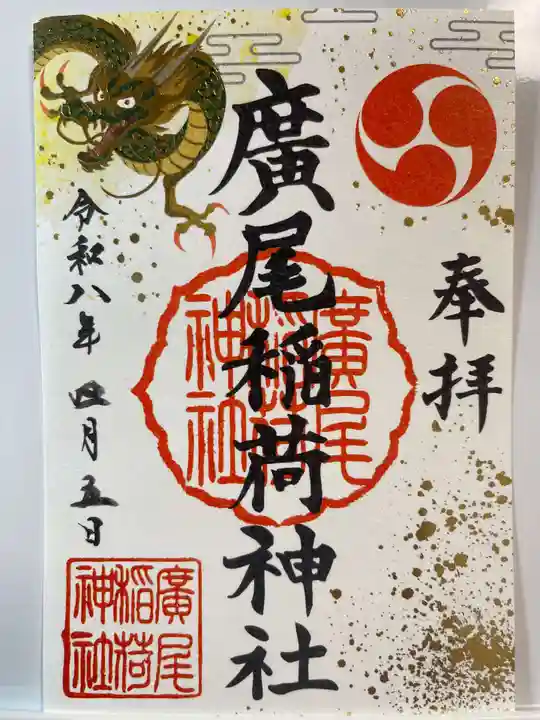 奉拝
廣尾稲荷神社
廣尾稲荷神社
令和八年四月五日
廣尾稲荷神社